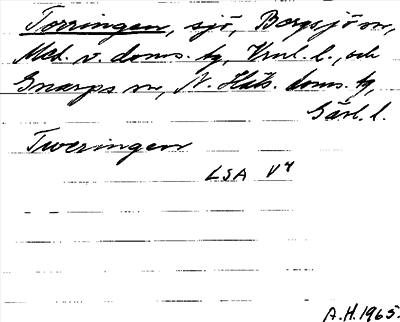 Torringen, sjö, Bergsjö sn,
Med. v. doms. tg, Vnl. l., och
Gnarps sn, N. Häls. doms. tg,
Gävl. l.
Tweringen
LSA V4
A.H. 1965.